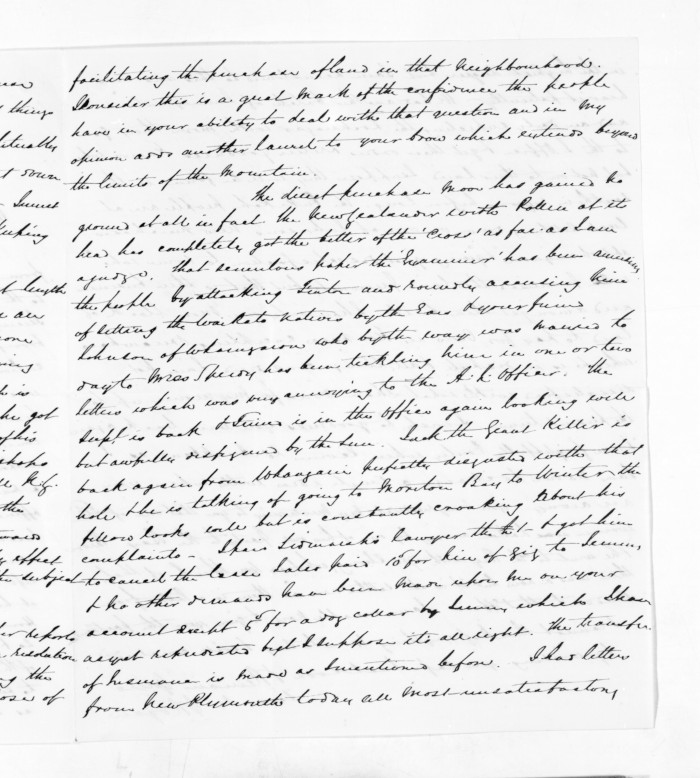 facilitating the purchase of land in that neighbourhood.
I consider this is a great mark of the confidence the people
have in your ability to deal with that question and in my
opinion adds another laurel to your brow which extends beyond
the limits of the Mountain.
The direct purchase Moon has gained no
ground at all in fact the New Zealander with Pollen at its
head has completely got the better of the 'Cross' as far as I can
ajudge. That sententous paper the 'Examiner' has been amusing
the people by attacking and roundly accusing him
of setting the Waikato natives by the Ears & your friend
Johnson of Whaingaroa who by the way was married to
day to Miss has been tickling him in one or two
letters which was very annoying to the Officer. The
Supt is back & is in the Office again looking well
but awfully disfigured by the Sun. Jack the Giant Killer is
back again from Whangarei perfectly disgusted with that
hole & he is talking of going to Moreton Bay to Winter the
fellow looks well but is constantly croaking about his
complaints - I paid lawyer the & got him
to cancel the lease also paid for hire of gig to
& no other demands have been made upon me on your
account except for a dog collar by which I have
as yet repudiated but I suppose its all right. The transfer
of is made as I mentioned before. I had letters
from New Plymouth today all most unsatisfactory
man
things
down
Keeping
length
an
one
is
he got
of his
the
affect
the subject
reports
resolution
the
of